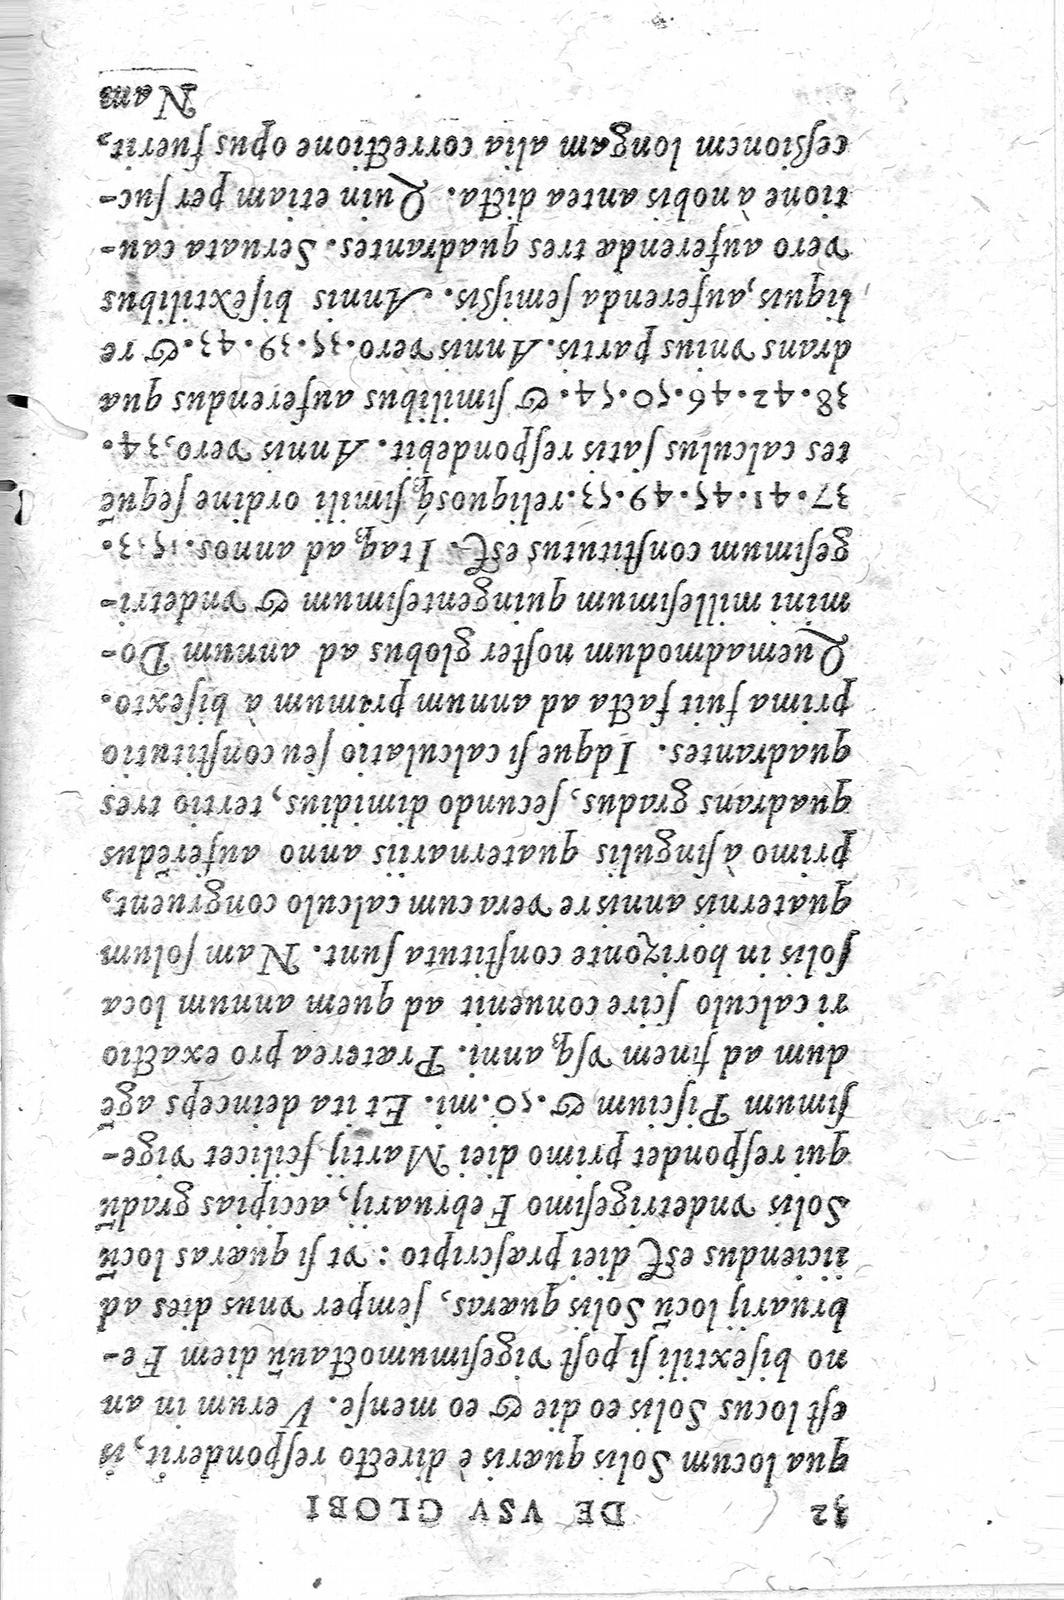 32 DE VSV GLOBI
qua locum Solis quæris è directo reſponderit, is
eſt locus Solis eo die & eo menſe. Verum in an
no biſextili ſi poſt vigeſimumoctauũ diem Fe-
bruarij locũ Solis quæras, ſemper vnus dies ad
iiciendus eſt diei præſcripto: vt ſi quæras locũ
Solis vndetrigeſimo Februarij, accipias gradũ
qui reſpondet primo diei Martij ſcilicet vige-
ſimum Piſcium &.50.mi. Et ita deinceps agẽ
dum ad finem vſq; anni. Præterea pro exactio
ri calculo ſcire conuenit ad quem annum loca
ſolis in horizonte conſtituta ſunt. Nam ſolum
quaternis annis re vera cum calculo congruent,
primo à ſingulis quaternariis anno auferẽdus
quadrans gradus, ſecundo dimidius, tertio tres
quadrantes. Idque ſi calculatio ſeu conſtitutio
prima fuit facta ad annum primum à biſexto.
Quemadmodum noſter globus ad annum Do-
mini milleſimum quingenteſimum & vndetri-
geſimum conſtitutus eſt. Itaq; ad annos.1533.
37.41.45.49.53.reliquosq́; ſimili ordine ſequẽ
tes calculus ſatis reſpondebit. Annis vero,34.
38.42.46.50.54.& ſimilibus auferendus qua
drans vnius partis. Annis vero.35.39.43.& re
liquis, auferenda ſemiſsis. Annis biſextilibus
vero auferendæ tres quadrantes. Seruata cau-
tione à nobis antea dicta. Quin etiam per ſuc-
ceſsionem longam alia correctione opus fuerit,
Nam